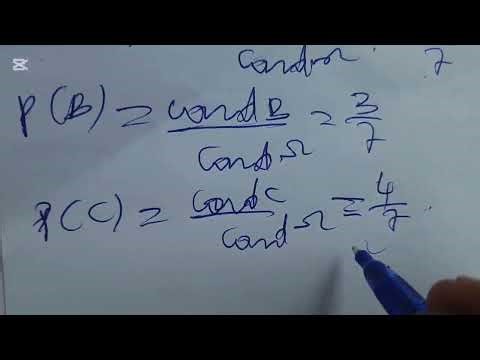 card Ω 7
P(B) = card B / card Ω = 3/7
P(C) = card C / card Ω = 4/7.